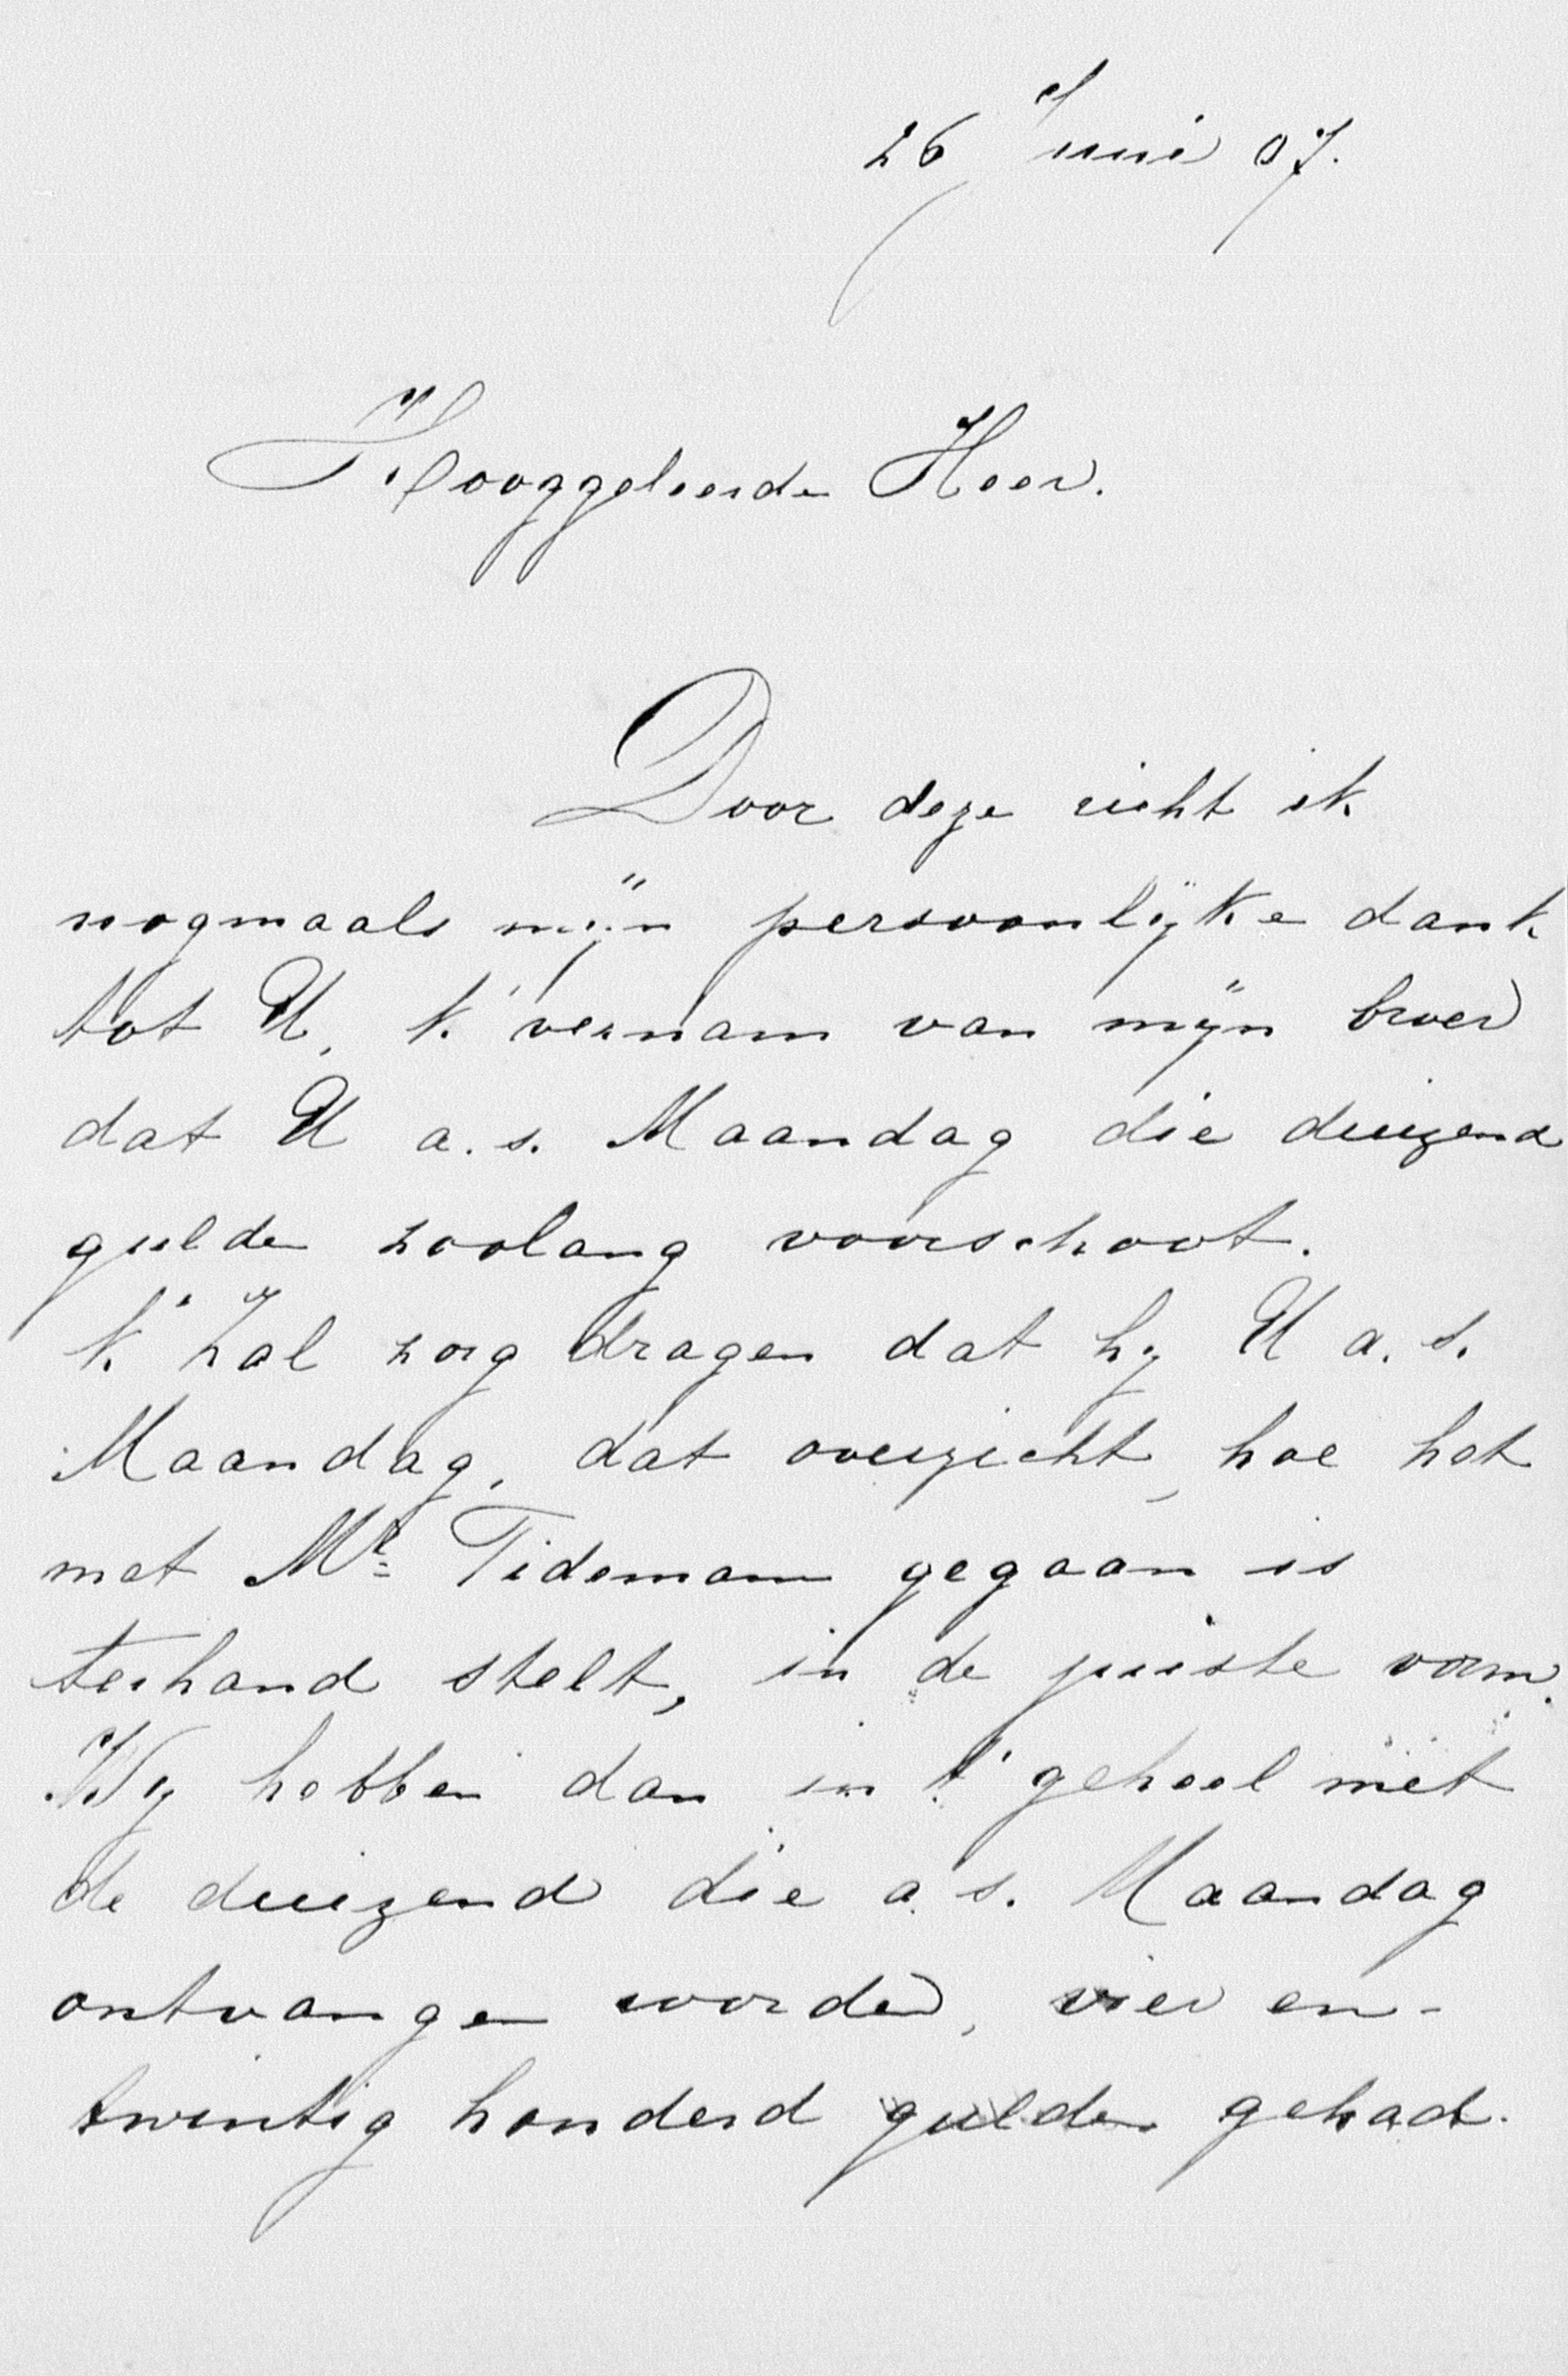 26 Juni 07.
Hooggeleerde Heer.
Door deze richt ik
nogmaals mijn persoonlijke dank
tot U, k' vernam van mijn broer
dat U a.s. Maandag die duizend
gulden zoolang voorschoot.
k' Zal zorg dragen dat hy U a.s.
Maandag, dat overzicht, hoe het
met Mr Tideman gegaan is
terhand stelt, in de juiste vorm.
Wy hebben dan in 't geheel met
de duizend die a.s. Maandag
ontvangen worden, vier en-
twintig honderd gulden gehad.